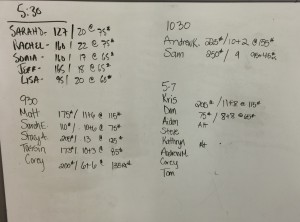 5:30
SARAHD- 127 / 20 @ 75#
RACHEL- 160 / 22 @ 75#
SONIA - 160 / 17 @ 65#
JEFF- 165 / 18 @ 65#
LISA- 95 / 20 @ 65#
930
Matt 175# / 11+6 @ 115#
Sarah E. 110# / 10+6 @ 75#
Stacy A. / 13 @ 95#
10+3 @ 85#
Corey 200# / 6+6 @
1030
Andrew K. 225# / 10+2 @ 155#
Sam 250# / 9
5-7
Kris 205# / 11+8 @ 115#
Dan 75# / 8+8 @ 65#
Aidan
Steve
Kathryn
Andrew H.
Corey
Tom